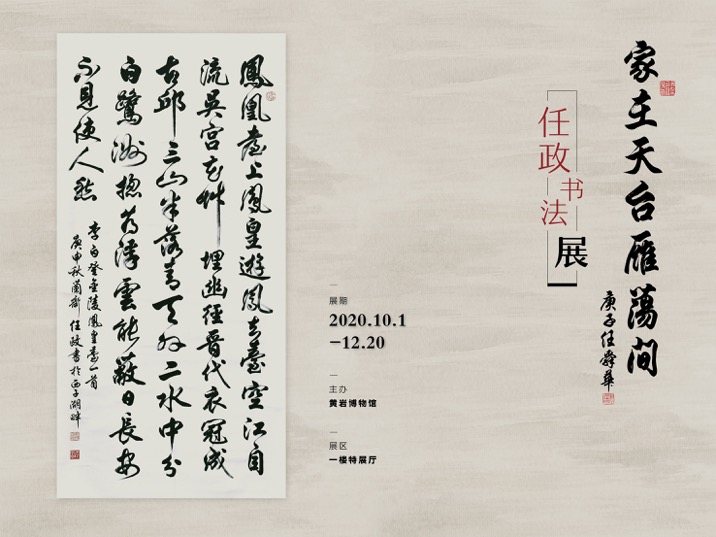 家在天台雁蕩间
庚子任舜華
任政
书法
展
展期
2020.10.1
–12.20
主办
黄岩博物馆
展区
一楼特展厅
鳳凰臺上鳳皇遊鳳去臺空江自
流吴宫花艸埋幽徑晉代衣冠成
古邱三山半落青天外二水中分
白鷺洲總为浮雲能蔽日長安
不見使人愁
李白登金陵鳳皇臺一首
庚申秋蘭齋任政書於西子湖畔